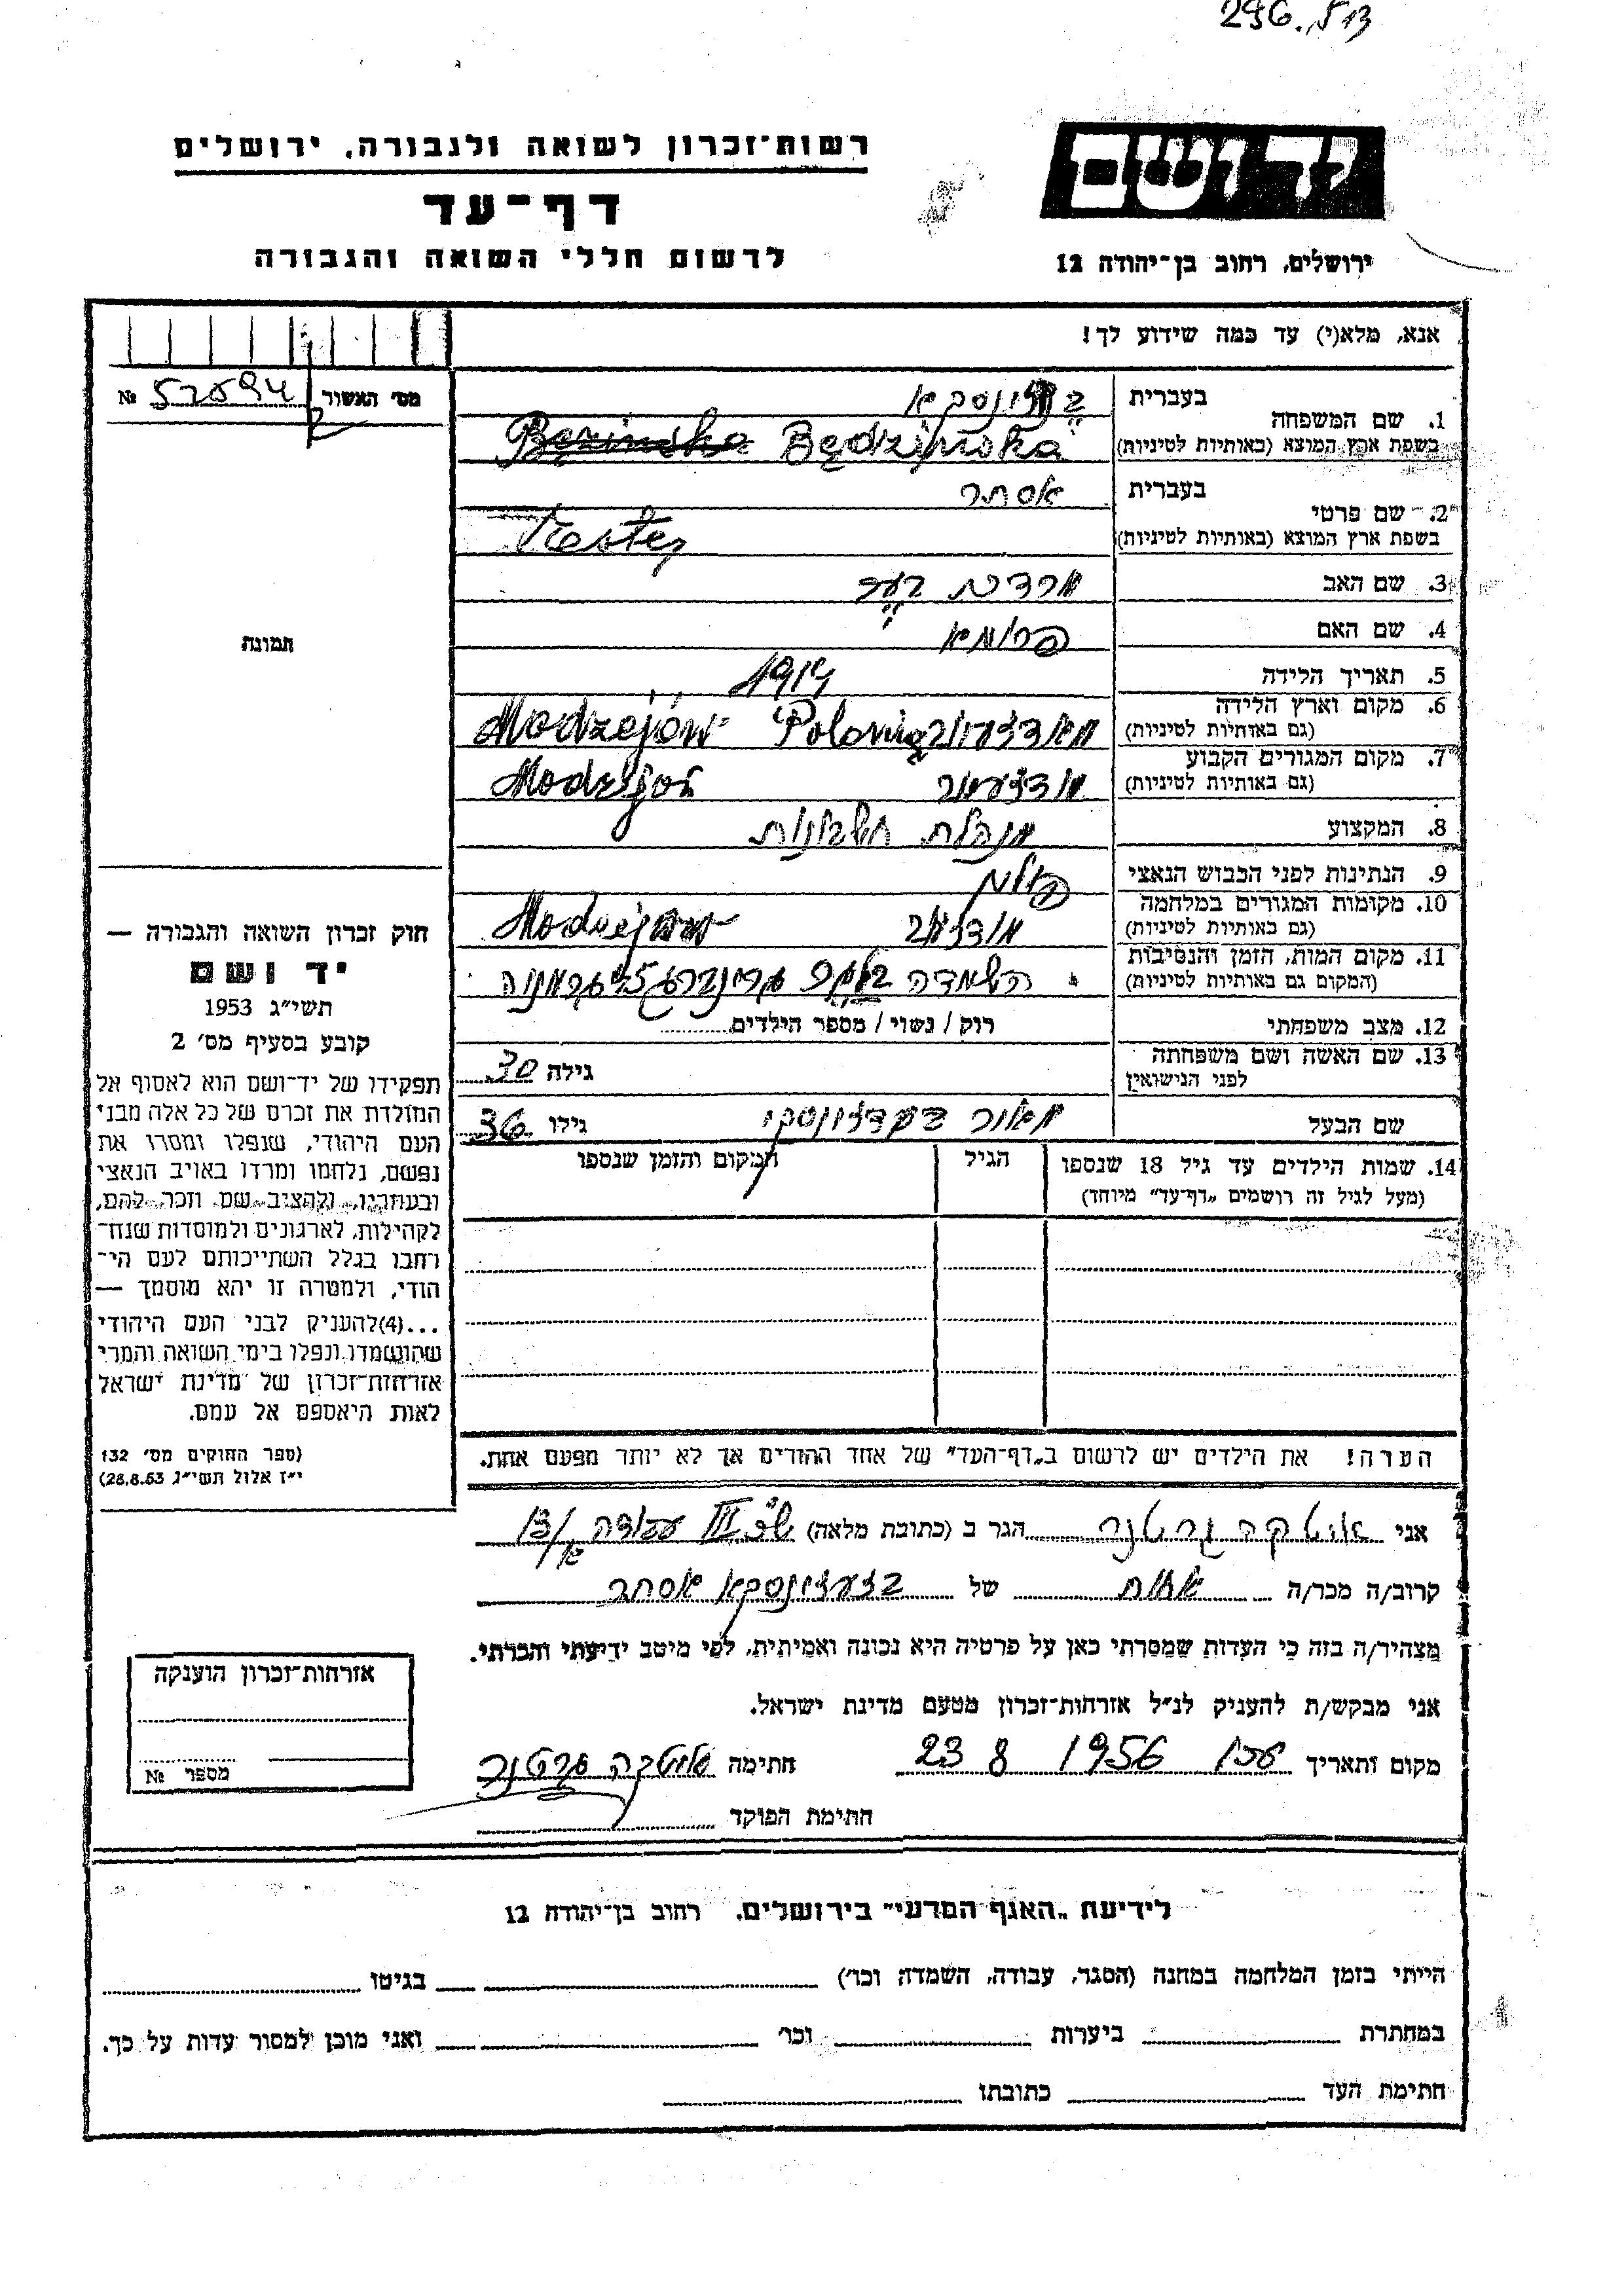 296.
רשות־זכרון לשואה ולגבורה, ירושלים
יד ושם
דף־עד
לרשום חללי השואה והגבורה
ירושלים, רחוב בן־יהודה 12
אנא, מלא(י) עד כמה שידוע לך!
מס׳ האשור № 52594
1. שם המשפחה
בעברית
בשפת ארץ המוצא (באותיות לטיניות) Będzińska
2. שם פרטי
בעברית אסתר
בשפת ארץ המוצא (באותיות לטיניות) Vester
3. שם האב מרדכי
4. שם האם פרומא
5. תאריך הלידה 1914
6. מקום וארץ הלידה
(גם באותיות לטיניות) Modzejów
7. מקום המגורים הקבוע
(גם באותיות לטיניות)
8. המקצוע מנהלת חשבונות
9. הנתינות לפני הכבוש הנאצי פולין
10. מקומות המגורים במלחמה
(גם באותיות לטיניות)
11. מקום המות, הזמן והנסיבות
(המקום גם באותיות לטיניות) השמדה
12. מצב משפחתי רוק / נשוי / מספר הילדים
13. שם האשה ושם משפחתה
לפני הנישואין גילה 30
שם הבעל מאור גילו 36
14. שמות הילדים עד גיל 18 שנספו
(מעל לגיל זה רושמים „דף־עד״ מיוחד)
הגיל
המקום והזמן שנספו
תמונה
חוק זכרון השואה והגבורה —
יד ושם
תשי״ג 1953
קובע בסעיף מס׳ 2
תפקידו של יד־ושם הוא לאסוף אל
המולדת את זכרם של כל אלה מבני
העם היהודי, שנפלו ומסרו את
נפשם, נלחמו ומרדו באויב הנאצי
ובעוזריו, ולהציב שם וזכר להם,
לקהילות, לארגונים ולמוסדות שנח־
רחבו בגלל השתייכותם לעם הי־
הודי, ולמטרה זו יהא מוסמך —
...(4)להעניק לבני העם היהודי
שהושמדו ונפלו בימי השואה והמרי
אזרחות־זכרון של מדינת ישראל
לאות היאספם אל עמם.
(ספר החוקים מס׳ 132
י״ז אלול תשי״ג 28.8.53)
הערה! את הילדים יש לרשום ב„דף־העד״ של אחד ההורים אך לא יותר מפעם אחת.
אני הגר ב (כתובת מלאה)
קרוב/ה מכר/ה אחות של אסתר
מצהיר/ה בזה כי העדות שמסרתי כאן על פרטיה היא נכונה ואמיתית, לפי מיטב ידיעתי והכרתי.
אני מבקש/ת להעניק לנ״ל אזרחות־זכרון מטעם מדינת ישראל.
מקום ותאריך 23 8 1956 חתימה
חתימת הפוקד
אזרחות־זכרון הוענקה
מספר №
לידיעת „האגף המדעי״ בירושלים, רחוב בן־יהודה 12
הייתי בזמן המלחמה במחנה (הסגר, עבודה, השמדה וכו׳) בגיטו
במחתרת ביערות וכו׳ ואני מוכן למסור עדות על כך.
חתימת העד כתובתו